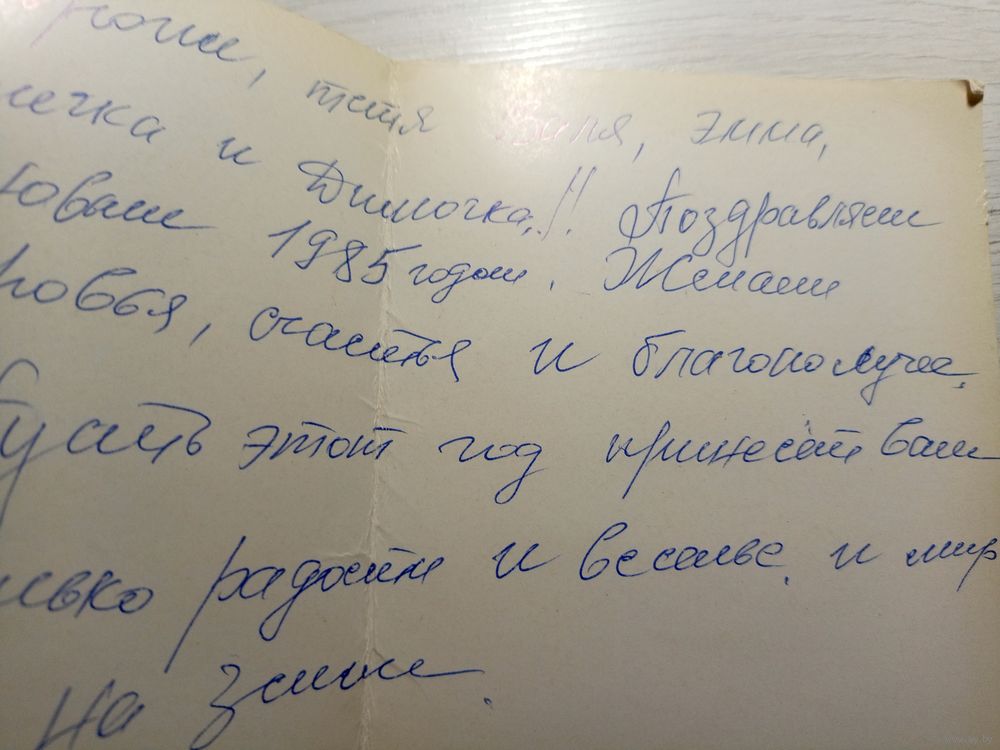 тетя Валя, Эмма,
ечка и Димочка,!! Поздравляем
Новым 1985 годом. Желаем
ровья, счастья и благополучие.
Пусть этот год принесёт Вам
лько радости и веселье, и мир
на земле.